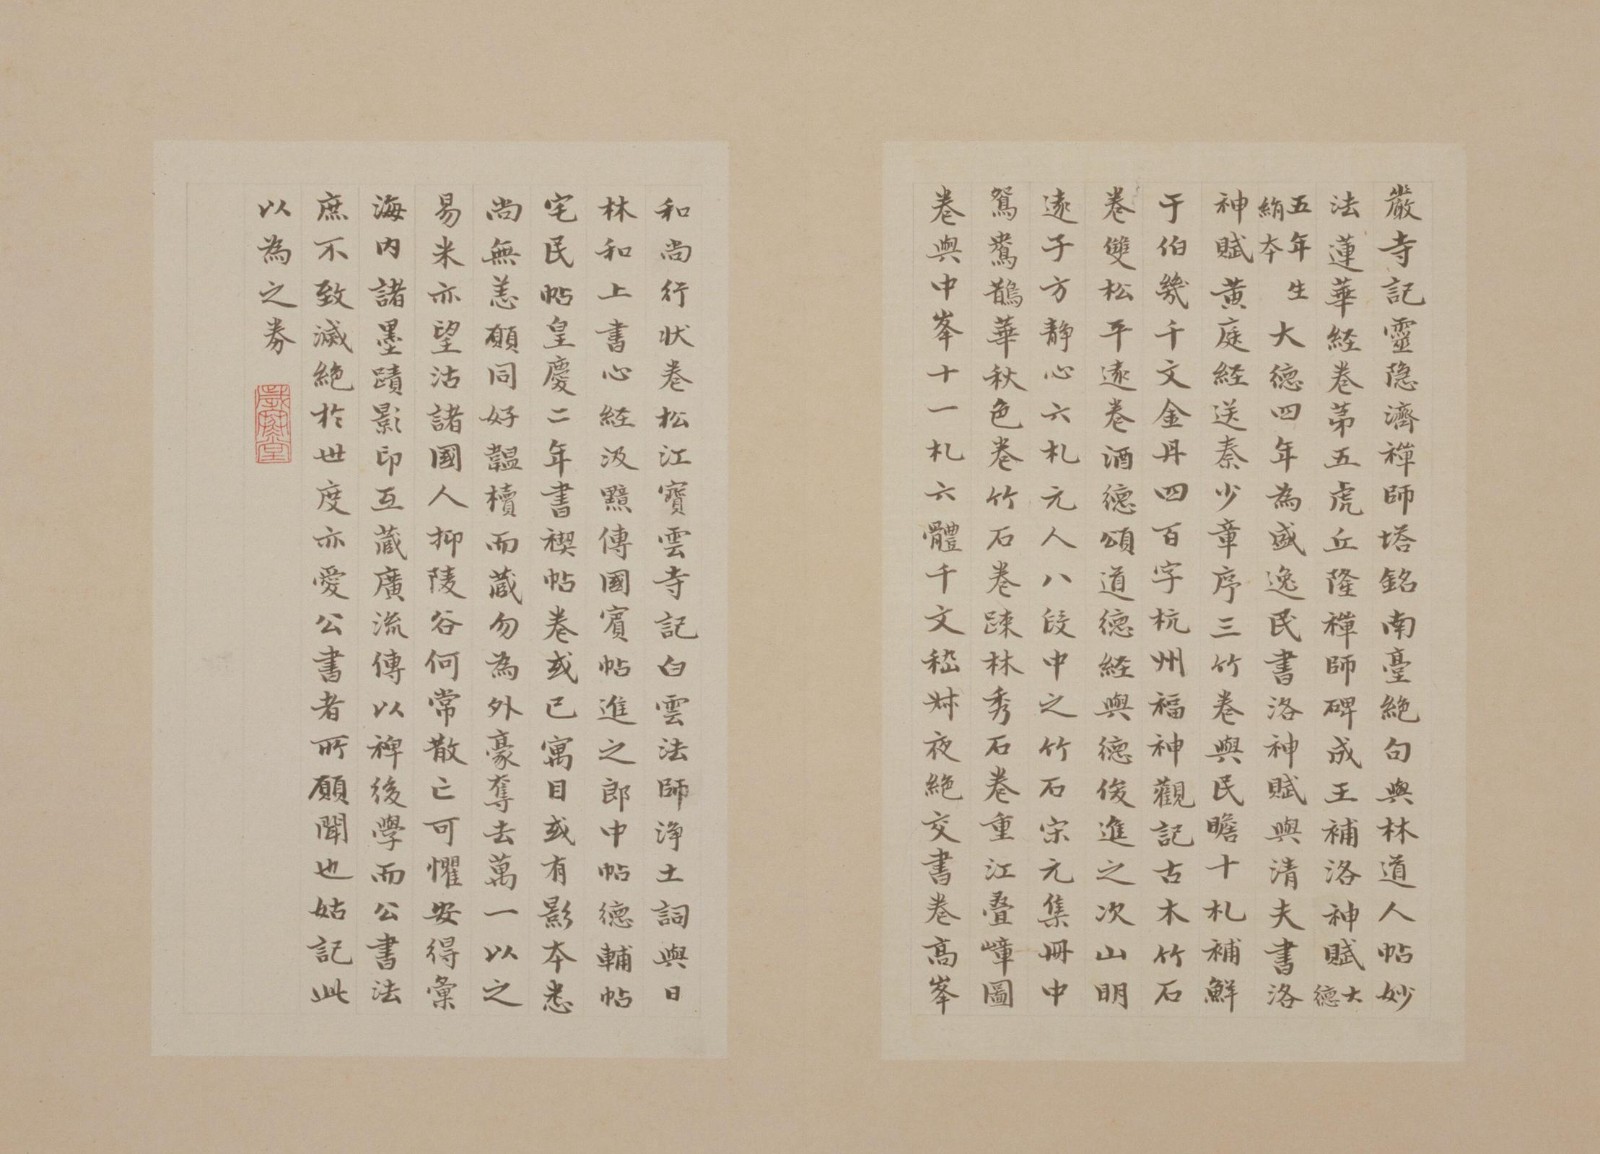 巖寺記靈隐濟禪師塔銘南臺絶句與林道人帖妙
法蓮華経卷苐五虎丘隆禪師碑成王補洛神賦大德
五年生絹本大德四年為盛逸民書洛神賦與清夫書洛
神賦黃庭経送秦少章序三竹卷與民瞻十札補鮮
于伯幾千文金丹四百字杭州福神觀記古木竹石
卷雙松平逺卷酒德頌道德経與德俊進之次山明
逺子方静心六札元人八段中之竹石宋元集冊中
鴛鴦鵲華秋色卷竹石卷疎林秀石卷重江疊嶂圖
卷與中峯十一札六體千文嵇叔夜絶交書卷高峯
和尚行状卷松江寶雲寺記白雲法師淨土詞與日
林和上書心経汲黯傳國賓帖進之郎中帖德輔帖
宅民帖皇慶二年書禊帖卷或已寓目或有影本悉
尚無恙願同好韞櫝而蔵勿為外豪奪去萬一以之
易米亦望沽諸國人抑陵谷何常散亡可懼安得彙
海内諸墨蹟影印互蔵廣流傳以裨後學而公書法
庶不致滅絶於世度亦愛公書者所願聞也姑記此
以為之券